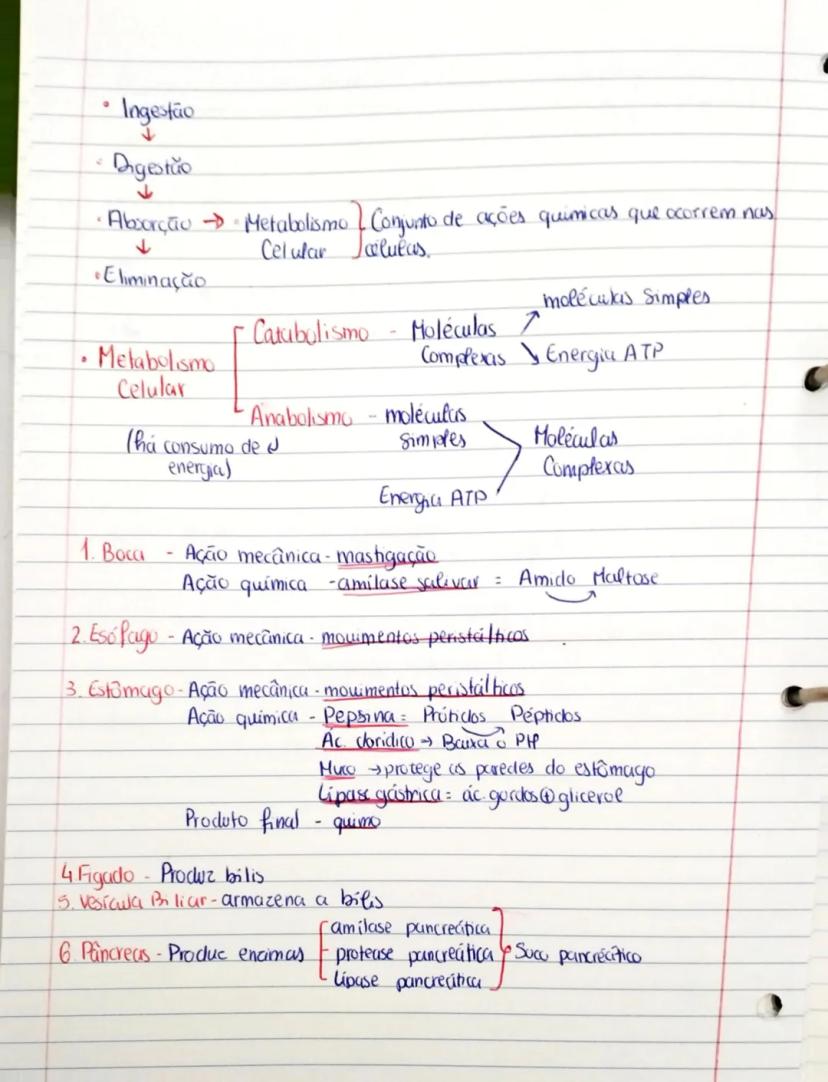 • Ingestão
↓
• Digestão
↓
• Absorção → • Metabolismo Celular } Conjunto de ações quimicas que ocorrem nas células.
↓
• Eliminação
moléculas Simples
Catabolismo - Moléculas
• Metabolismo Complexas Energia ATP
Celular
Anabolismo - moléculas
(há consumo de simples Moléculas
energia) Complexas
Energia ATP
1. Boca - Ação mecânica - mastigação
Ação química - amilase salivar = Amido Maltose
2. Esófago - Ação mecânica - movimentos peristálticos
3. Estômago - Ação mecânica - movimentos peristálticos
Ação química - Pepsina = Prótidos Péptidos
Ác. clorídico → Baixa o PH
Muco → protege as paredes do estômago
Lipase gástrica = ác. gordos + glicerol
Produto final - quimo
4. Fígado - Produz bilis
5. Vesícula Biliar - armazena a bílis
6. Pâncreas - Produc enzimas
amílase pancreática
protease pancreática Suco pancreático
lípase pancreática